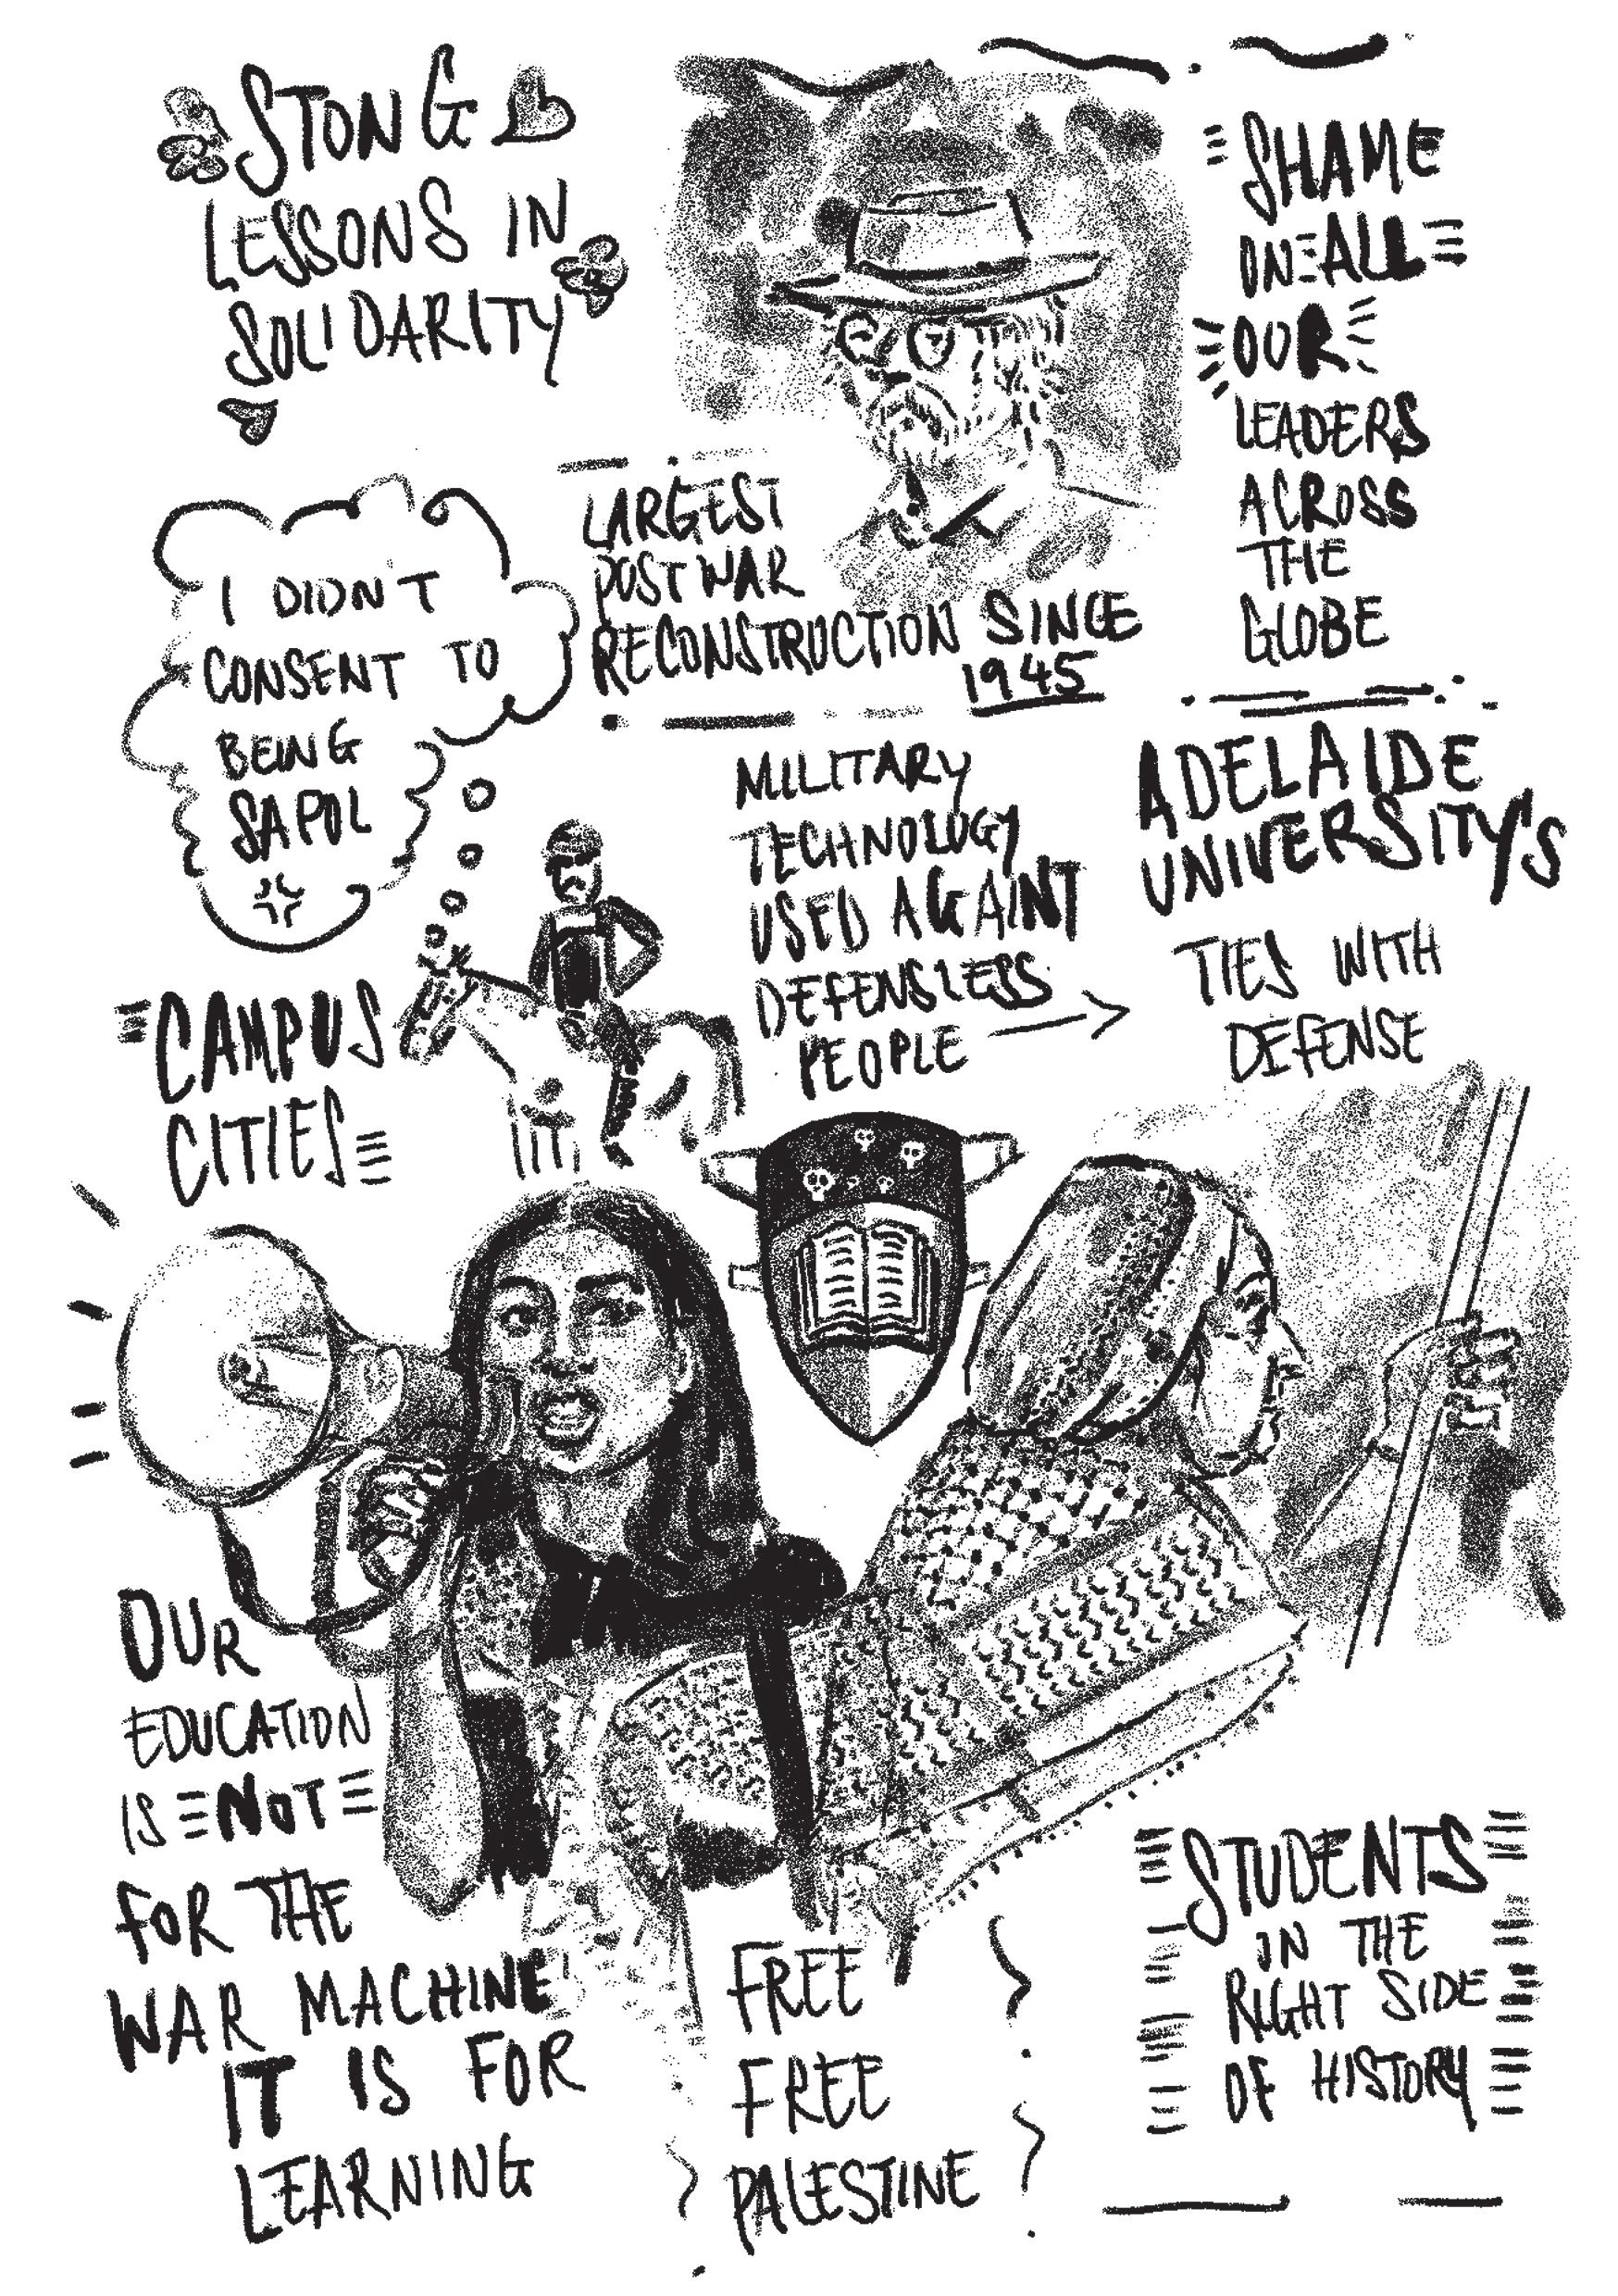 STONG
LESSONS IN
SOLIDARITY
SHAME
ON ALL
OUR
LEADERS
ACROSS
THE
GLOBE
LARGEST
POST WAR
RECONSTRUCTION SINCE
1945
I DIDN'T
CONSENT TO
BEING
SAPOL
MILITARY
TECHNOLOGY
USED AGAINT
DEFENSLESS
PEOPLE
ADELAIDE
UNIVERSITY'S
TIES WITH
DEFENSE
CAMPUS
CITIES
OUR
EDUCATION
IS NOT
FOR THE
WAR MACHINE
IT IS FOR
LEARNING
FREE
FREE
PALESTINE
STUDENTS
IN THE
RIGHT SIDE
OF HISTORY